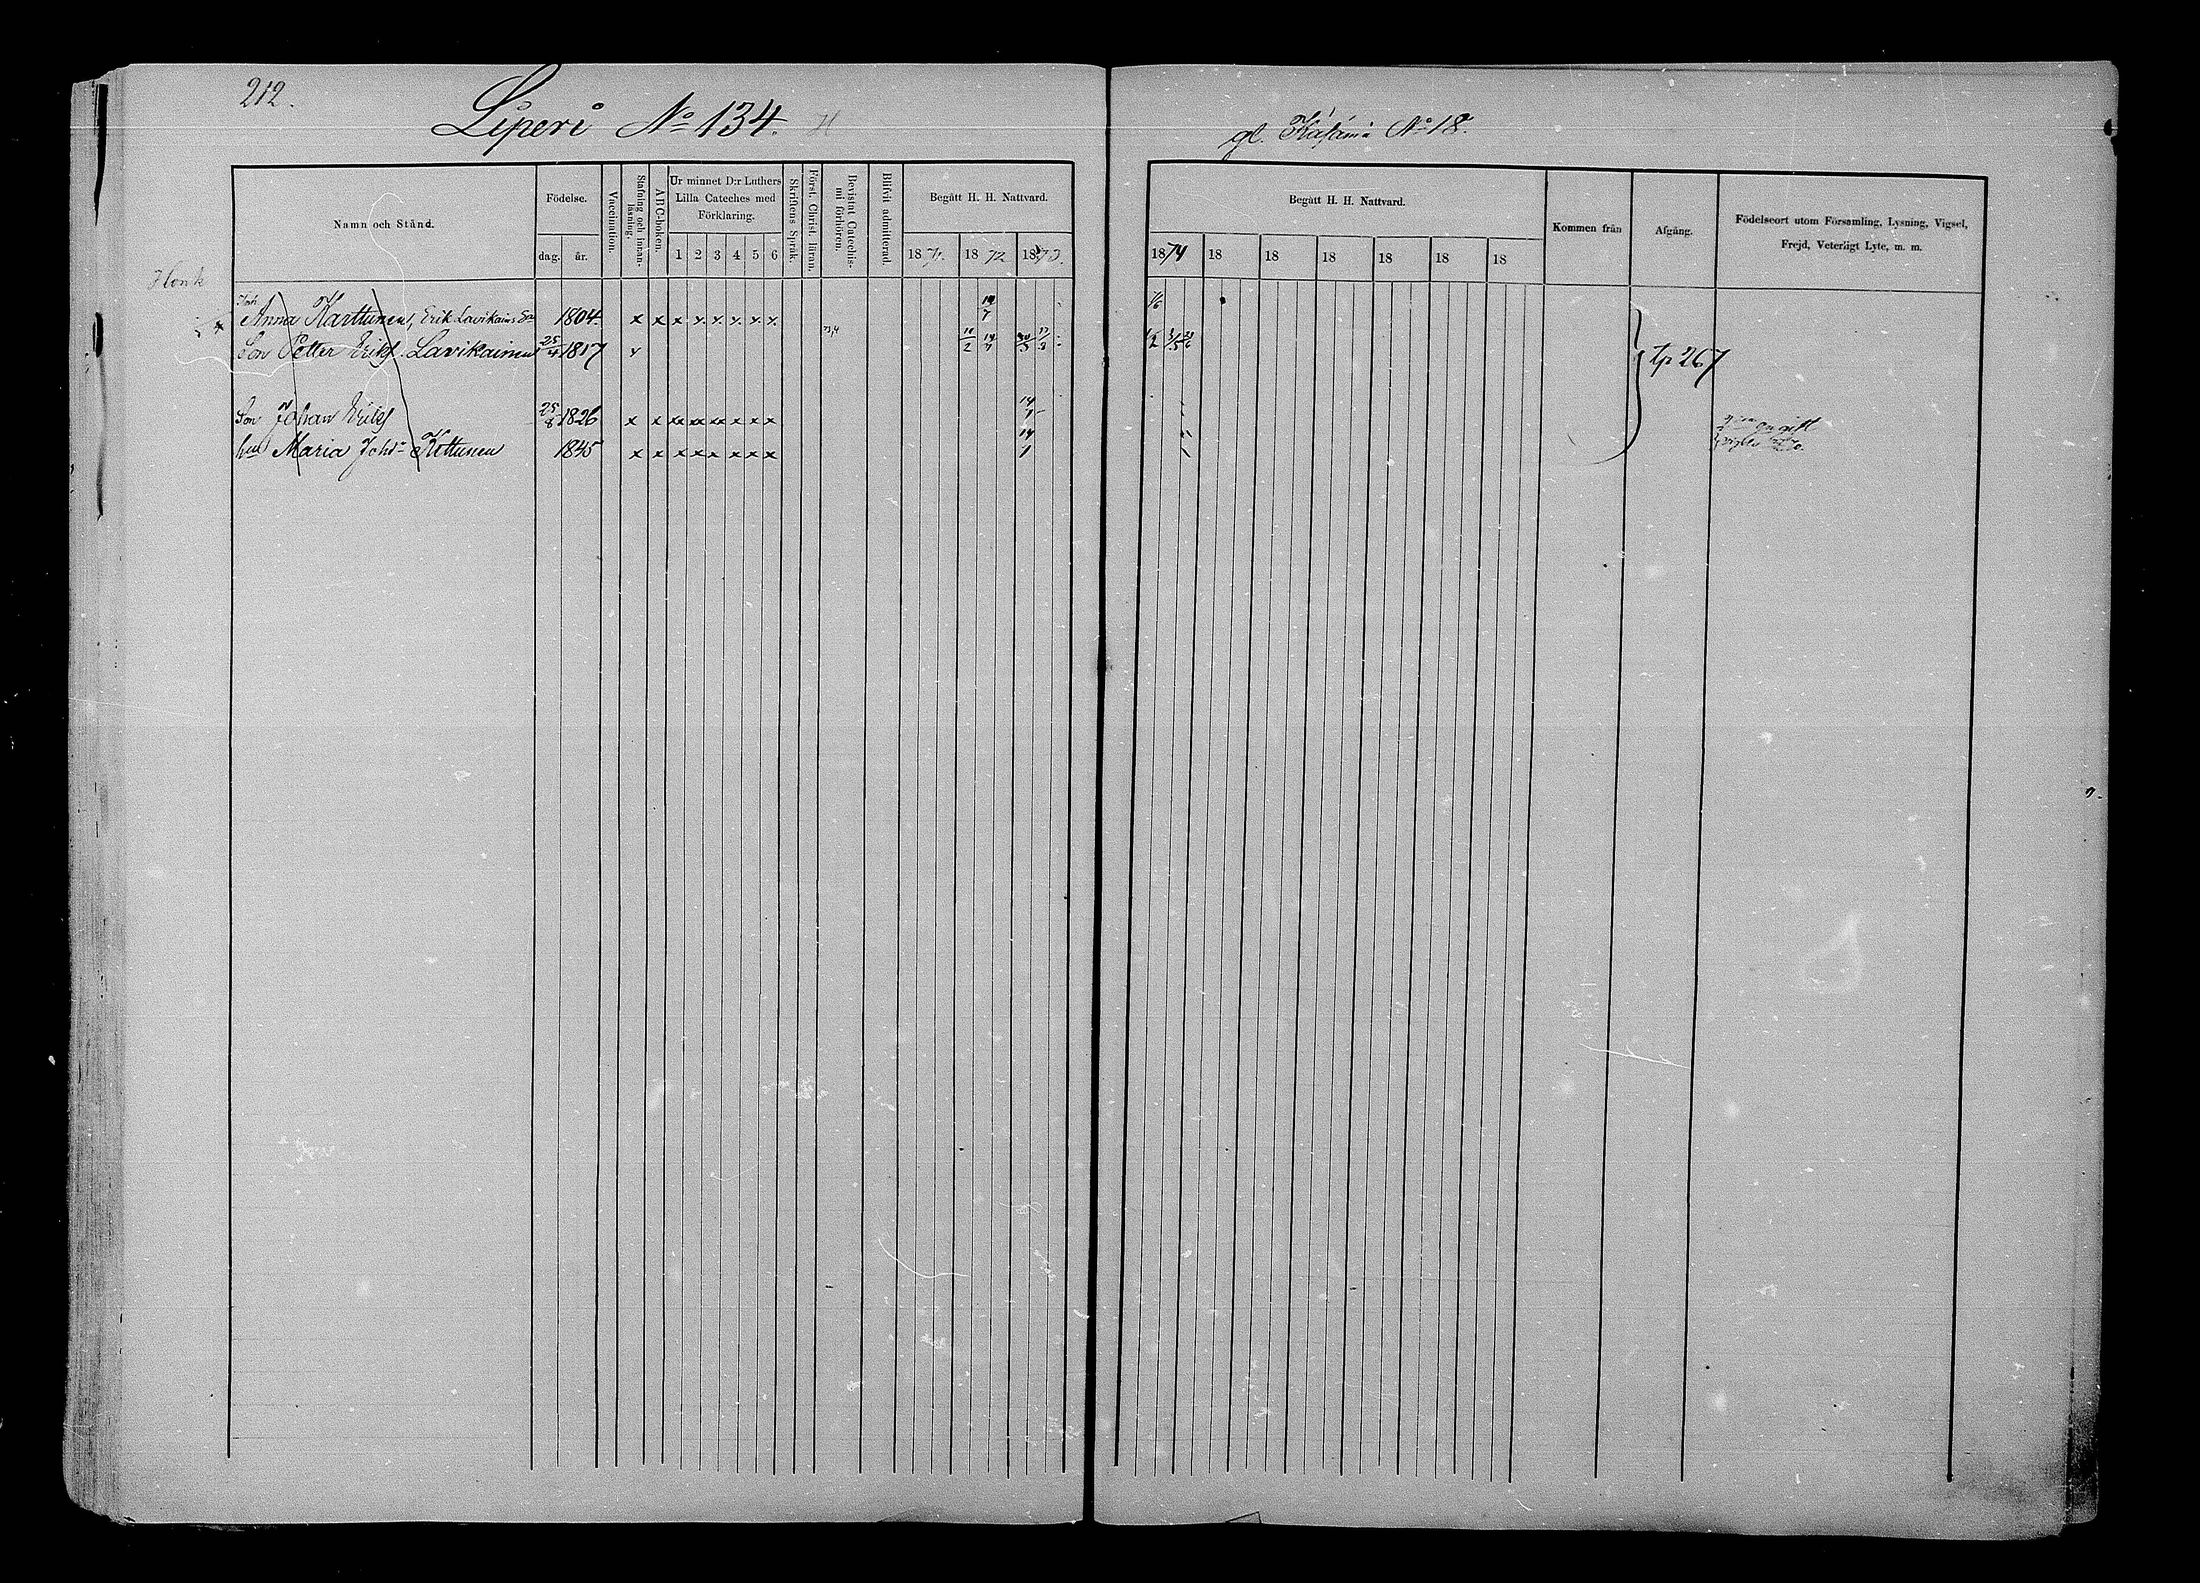 212.
Liperi No 134. H
gl. Käsämä No 18.
Namn och Stånd.
Födelse.
dag. år.
Vaccination.
Stafning och innanläsning.
ABC-boken.
Ur minnet D:r Luthers Lilla Cateches med Förklaring.
1 2 3 4 5 6
Skriftens Språk.
Först. Christ. läran.
Bevistat Catechismi förhören.
Blifvit admitterad.
Begått H. H. Nattvard.
1871. 1872 1873.
Begått H. H. Nattvard.
1874 18 18 18 18 18 18
Kommen från
Afgång.
Födelseort utom Församling, Lysning, Vigsel,
Frejd, Veterligt Lyte, m. m.
Anna Karttunen, Erik Lavikains 1804. x x x x. x. x. x. x. 14/7
Son Petter Eriks. Lavikainen 25/4 1817 73,4
tp 267
Son Johan Eriks 25/8 1826 x x xx xx xx x x x 14/7
hu Maria Johs Kettunen 1845 x x x x x x x x 14/7